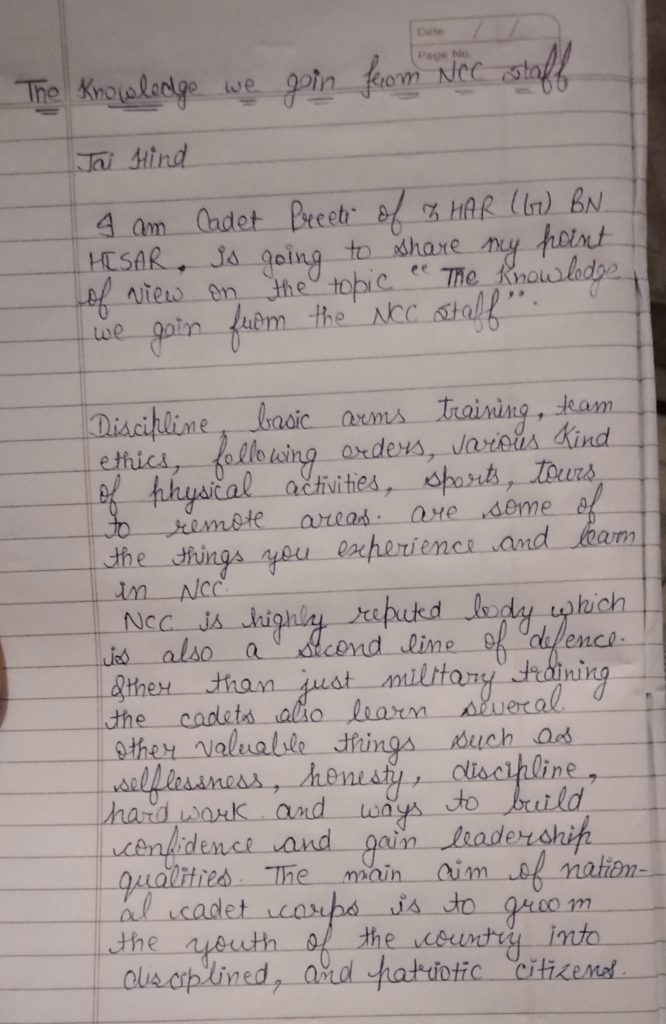 Date / /
Page No.
The Knowledge we gain from NCC staff
Jai Hind
I am Cadet Preeti of 3 HAR (G) BN
HISAR, is going to share my point
of view on the topic "The Knowledge
we gain from the NCC staff".
Discipline, basic arms training, team
ethics, following orders, various kind
of physical activities, sports, tours
to remote areas. are some of
the things you experience and learn
in NCC.
NCC is highly reputed body which
is also a second line of defence.
Other than just military training
the cadets also learn several
other valuable things such as
selflessness, honesty, discipline,
hard work and ways to build
confidence and gain leadership
qualities. The main aim of nation-
al cadet corps is to groom
the youth of the country into
disciplined, and patriotic citizens.